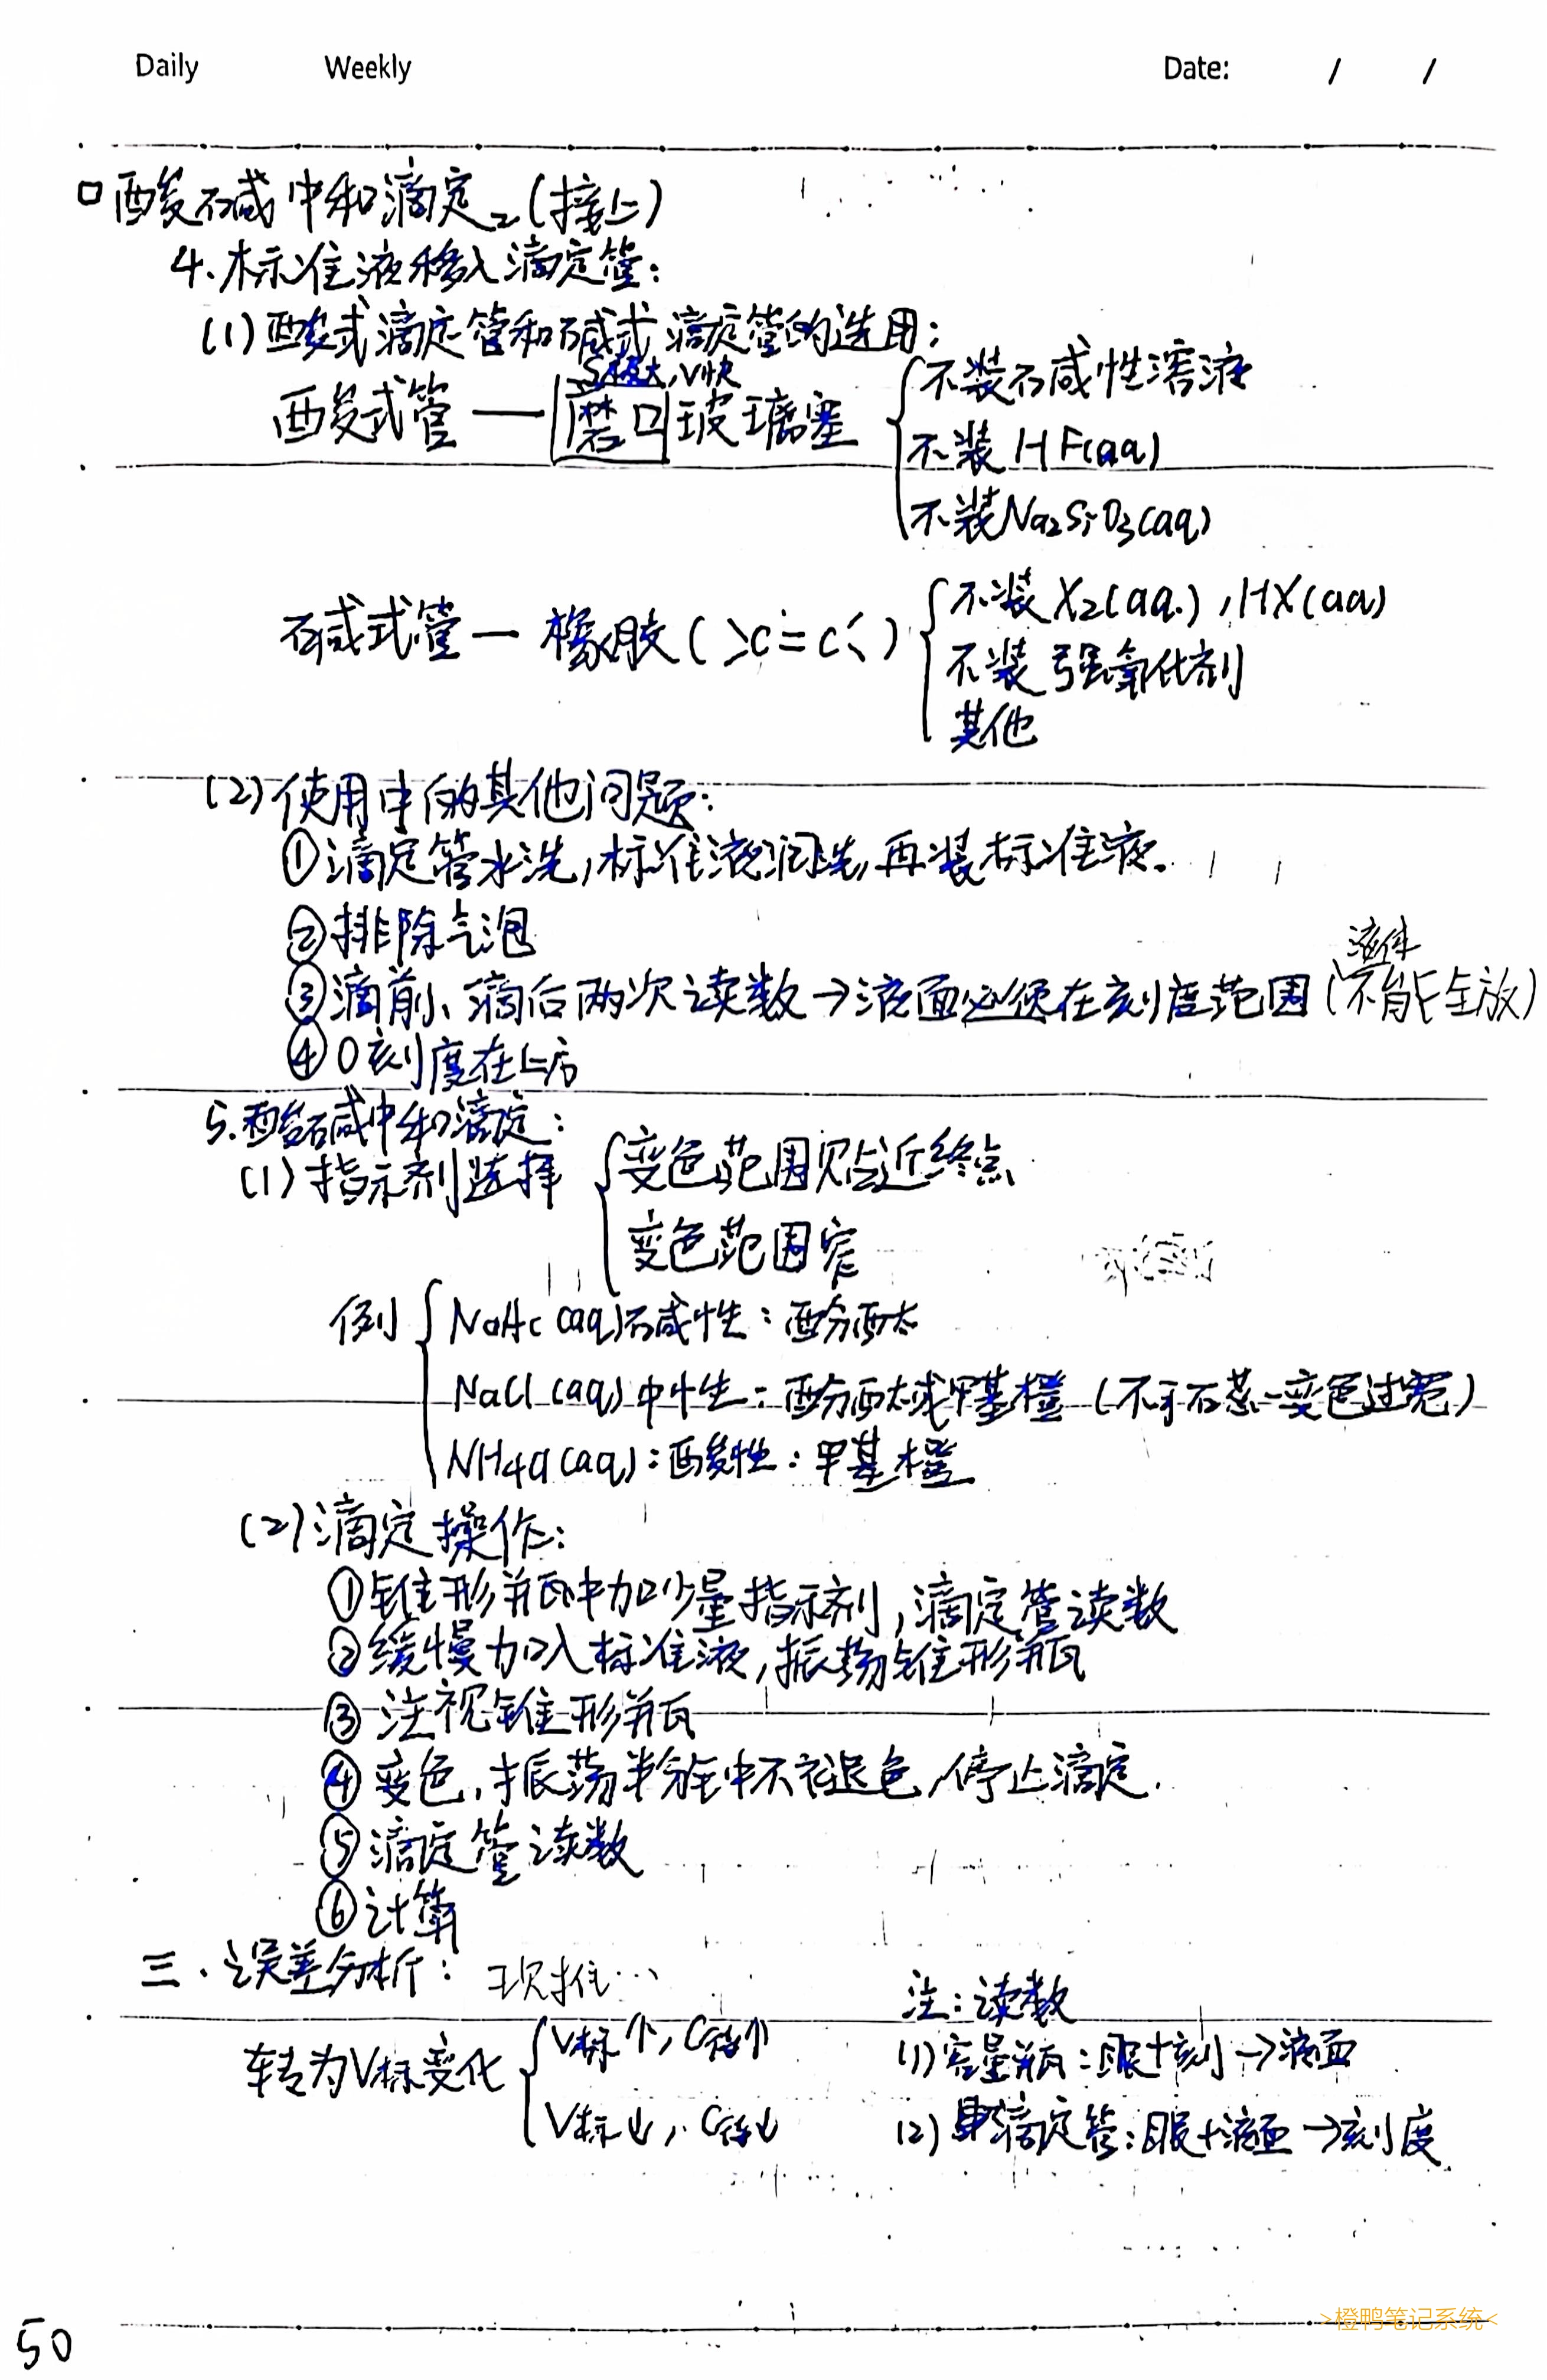 Daily Weekly Date: / /
口酸碱中和滴定₂(接上)
4.标准液移入滴定管:
(1)酸式滴定管和碱式滴定管的选用:
S极大,V快
酸式管——磨口玻璃塞
不装碱性溶液
不装HF(aq)
不装Na₂SiO₃(aq)
碱式管—橡胶(>C=C<)
不装X₂(aq),HX(aq)
不装强氧化剂
其他
(2)使用中的其他问题:
①滴定管水洗,标准液润洗,再装标准液.
②排除气泡
液体
③滴前、滴后两次读数→液面必须在刻度范围(不能全放)
④0刻度在上方
5.酸碱中和滴定:
(1)指示剂选择
变色范围贴近终点
变色范围窄
例
NaAc(aq)碱性:酚酞
NaCl(aq)中性:酚酞或甲基橙(不于石蕊—变色过宽)
NH₄Cl(aq):酸性:甲基橙
(2)滴定操作:
①锥形瓶中加少量指示剂,滴定管读数
②缓慢加入标准液,振荡锥形瓶
③注视锥形瓶
④变色,振荡半分钟不褪色,停止滴定.
⑤滴定管读数
⑥计算
三.误差分析: 现推…
转为V标变化
V标↑,C待↑
V标↓,C待↓
注:读数
(1)容量瓶:眼+刻→液面
(2)滴定管:眼+液面→刻度
50
>橙鸭笔记系统<